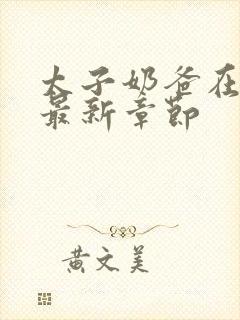 太子奶爸在
最新章节
黄文美